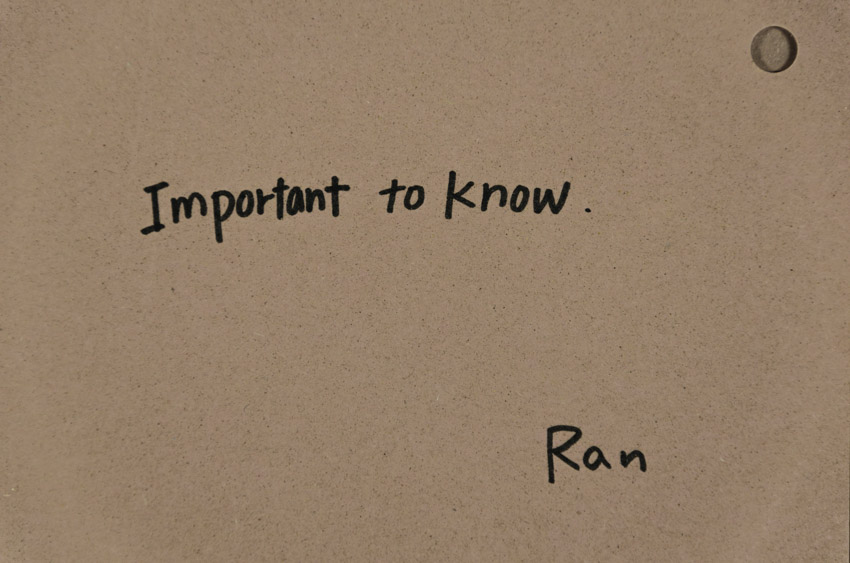 Important to know.
Ran